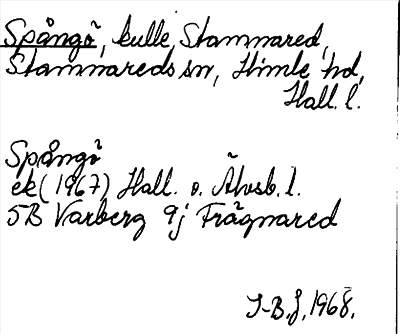 Spångö, kulle, Stamnared,
Stamnareds sn, Himle hd,
Hall. l.
Spångö
ek (1967) Hall. o. Älvsb. l.
5B Varberg 9j Frägnared
I-B.J. 1968.